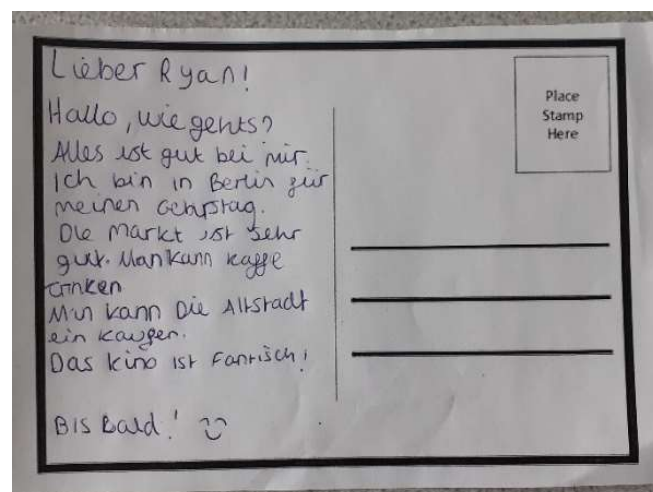 Lieber Ryan!
Hallo, wie gehts?
Alles ist gut bei mir.
Ich bin in Berlin für
meinen
Die Markt ist sehr
gut. Man kann kaffe
trinken
Man kann Die Altstadt
ein kaufen.
Das kino ist Fantisch!
BIS Bald!
Place
Stamp
Here